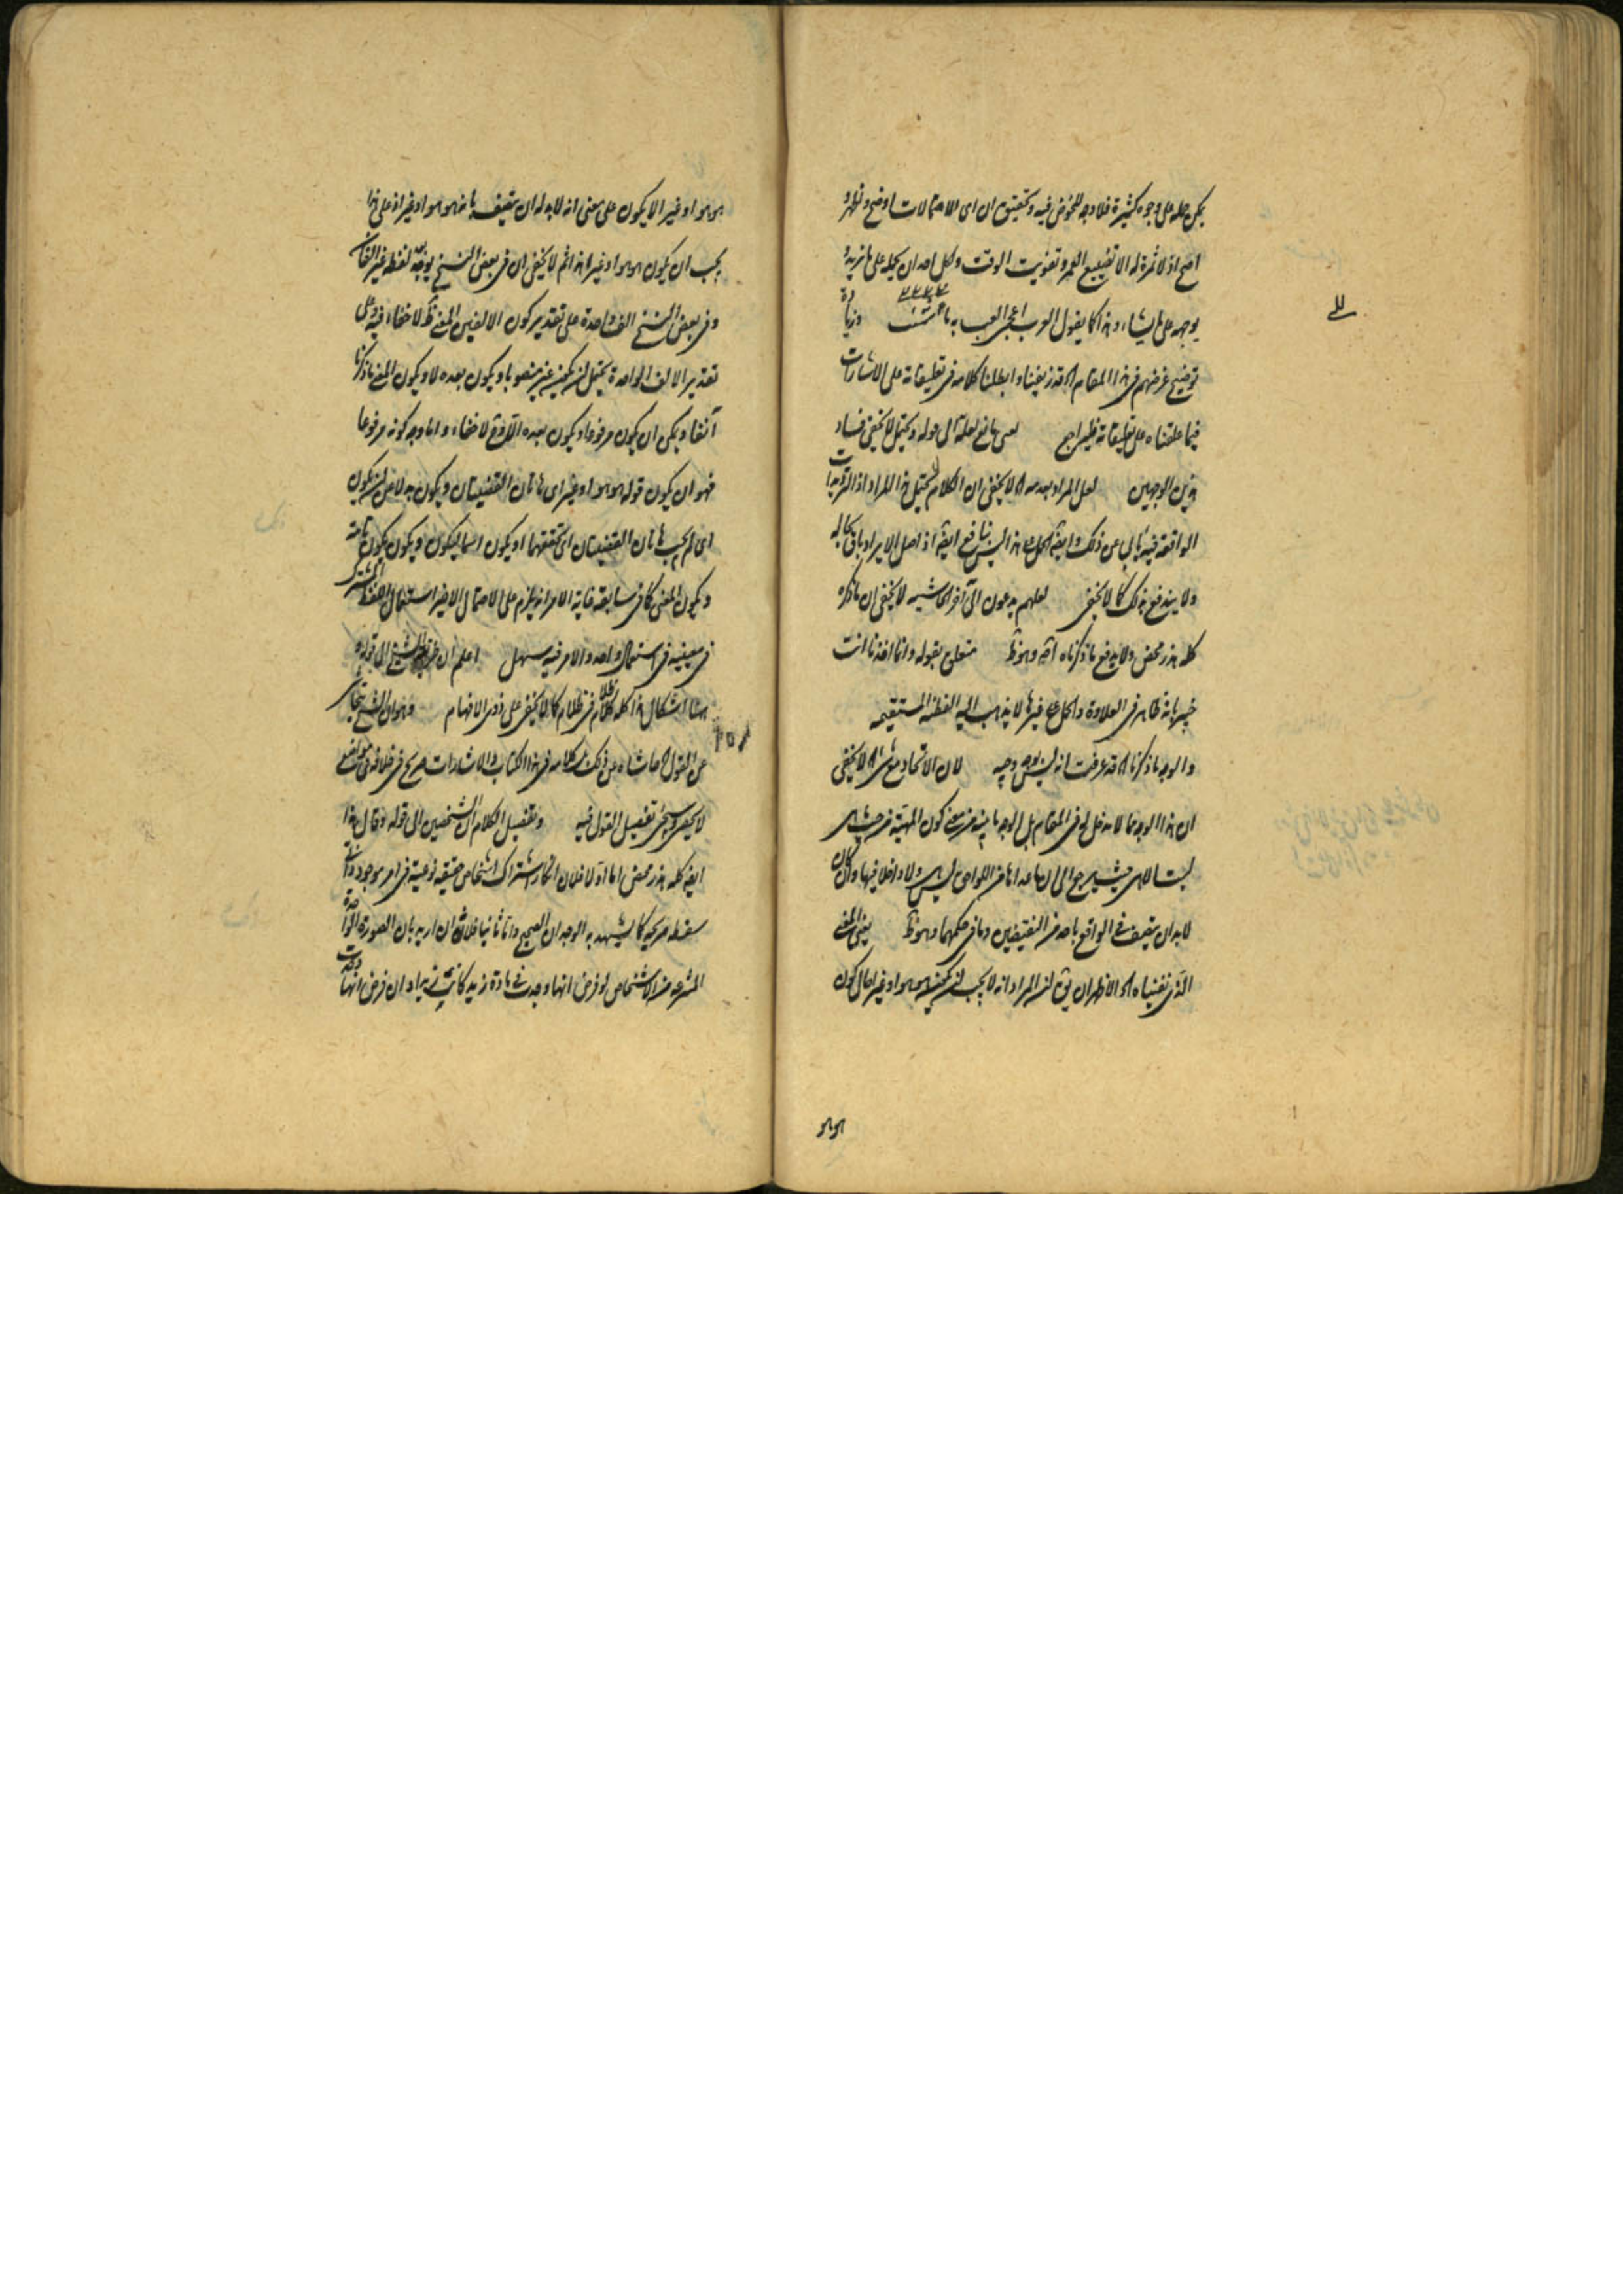 يمكن حمله على وجوه كثيرة فلا وجه للخوض فيه وتحقيق ان اى الاحتمالات اوضح واظهر و
اصح اذ لا ثمرة له الا تضييع العمر وتفويت الوقت ولكل احد ان يحمله على ما يريد و
يوجهه على ما يشاء وهذا كما يقول العرب اعجمى العب به ما شئت وزيادة
توضيح غرضهم فى هذا المقام قد زيفنا وابطلنا كلامه فى تعليقاته على الاشارات
فيما علقناه على تعليقاته فليراجع لعل مانع الى قوله ويحتمل لا يخفى فساد
هذين الوجهين لعل المراد بعدمه لا يخفى ان الكلام لا يحتمل هذا المراد اذ الترديدات
الواقعة فيه يأبى عن ذلك وايضا الحمل على هذا ليس بنافع ايضا اذ اصل الايراد باق بحاله
ولا يندفع بذلك كما لا يخفى لعلهم يدعون الى آخر الحاشيه لا يخفى ان ما ذكره
كله هذر محض ولا يدفع ما ذكرناه اصلا وهو ظ متعلق بقوله وانما اخذنا انت
خبير بانه ظاهر فى العلاوة والحمل على غيرها لا يذهب اليه الفطنة المستقيمه
والوجه ما ذكرنا قد عرفت انه ليس بوجيه لان الاتحاد مع شى لا يخفى
ان هذا الوجه مما لا مدخل له فى المقام بل الوجه ما بينه من معنى كون المهية من حيث هى
ليست الا هى حيث يرجع الى ان ما عداها من اللواحق ليس ولا داخلا فيها وان كان
لا بد ان يتصف فى الواقع باحد من النقيضين وما فى حكمهما وهو ظ يعنى المعنى
الذى نفيناه الاظهر ان يق ان المراد انه لا يجب ان يكون هو هو او غير اى لا يكون
هو هو
هو هو او غير الا يكون على معنى انه لا بد له ان يتصف بانه هو هو او غير اذ على هذا
يجب ان يكون هو هو او غير هذا ثم لا يخفى ان فى بعض النسخ يوجد لفظة غير بالفان
وفى بعض النسخ الف واحدة على تقدير كون الالفين المعنى ظ لا خفاء فيه وعلى
تقدير الالف الواحدة يحتمل ان يكون غير منصوبا ويكون بعده لا ويكون المعنى ما ذكرنا
آنفا ويمكن ان يكون مرفوعا ويكون بعده الا وح لا خفاء واما وجه كونه مرفوعا
فهو ان يكون قوله هو هو او غير اى هاتان القضيتان ويكون بدلا عن ان يكون
اى لم يجب هاتان القضيتان اى تحققهما او يكون اسما ليكون ويكون يكون تامة
ويكون المعنى كما فى سابقه غاية الامر انه يلزم على الاحتمال الاخير استعمال اللفظ المشترك
فى معنييه فى استعمال واحد والامر فيه سهل اعلم ان الشيخ الى قوله
هنا اشكال هذا كله ظلام فى ظلام كما لا يخفى على ذوى الافهام وهو ان الشيخ تحاشى
عن القول حاشاه عن ذلك كلامه فى هذا الكتاب والاشارات صريح فى خلافه فى مواضع
لا يحصى وسيجئ تفصيل القول فيه وتفصيل الكلام ان الشخصين الى قوله وقال هذا
ايضا كله هذر محض اما اولا فلان انكار اشتراك اشخاص حقيقة نوعية فى امر موجود ذاتى
سفسطه صريحه كما يشهد به الوجدان الصحيح واما ثانيا فلانه ان اريد بان الصورة الواحدة
المنتزعه من الاشخاص لو فرض انها وجدت فى مادة زيد كانت زيدا وان فرض انها وجدت